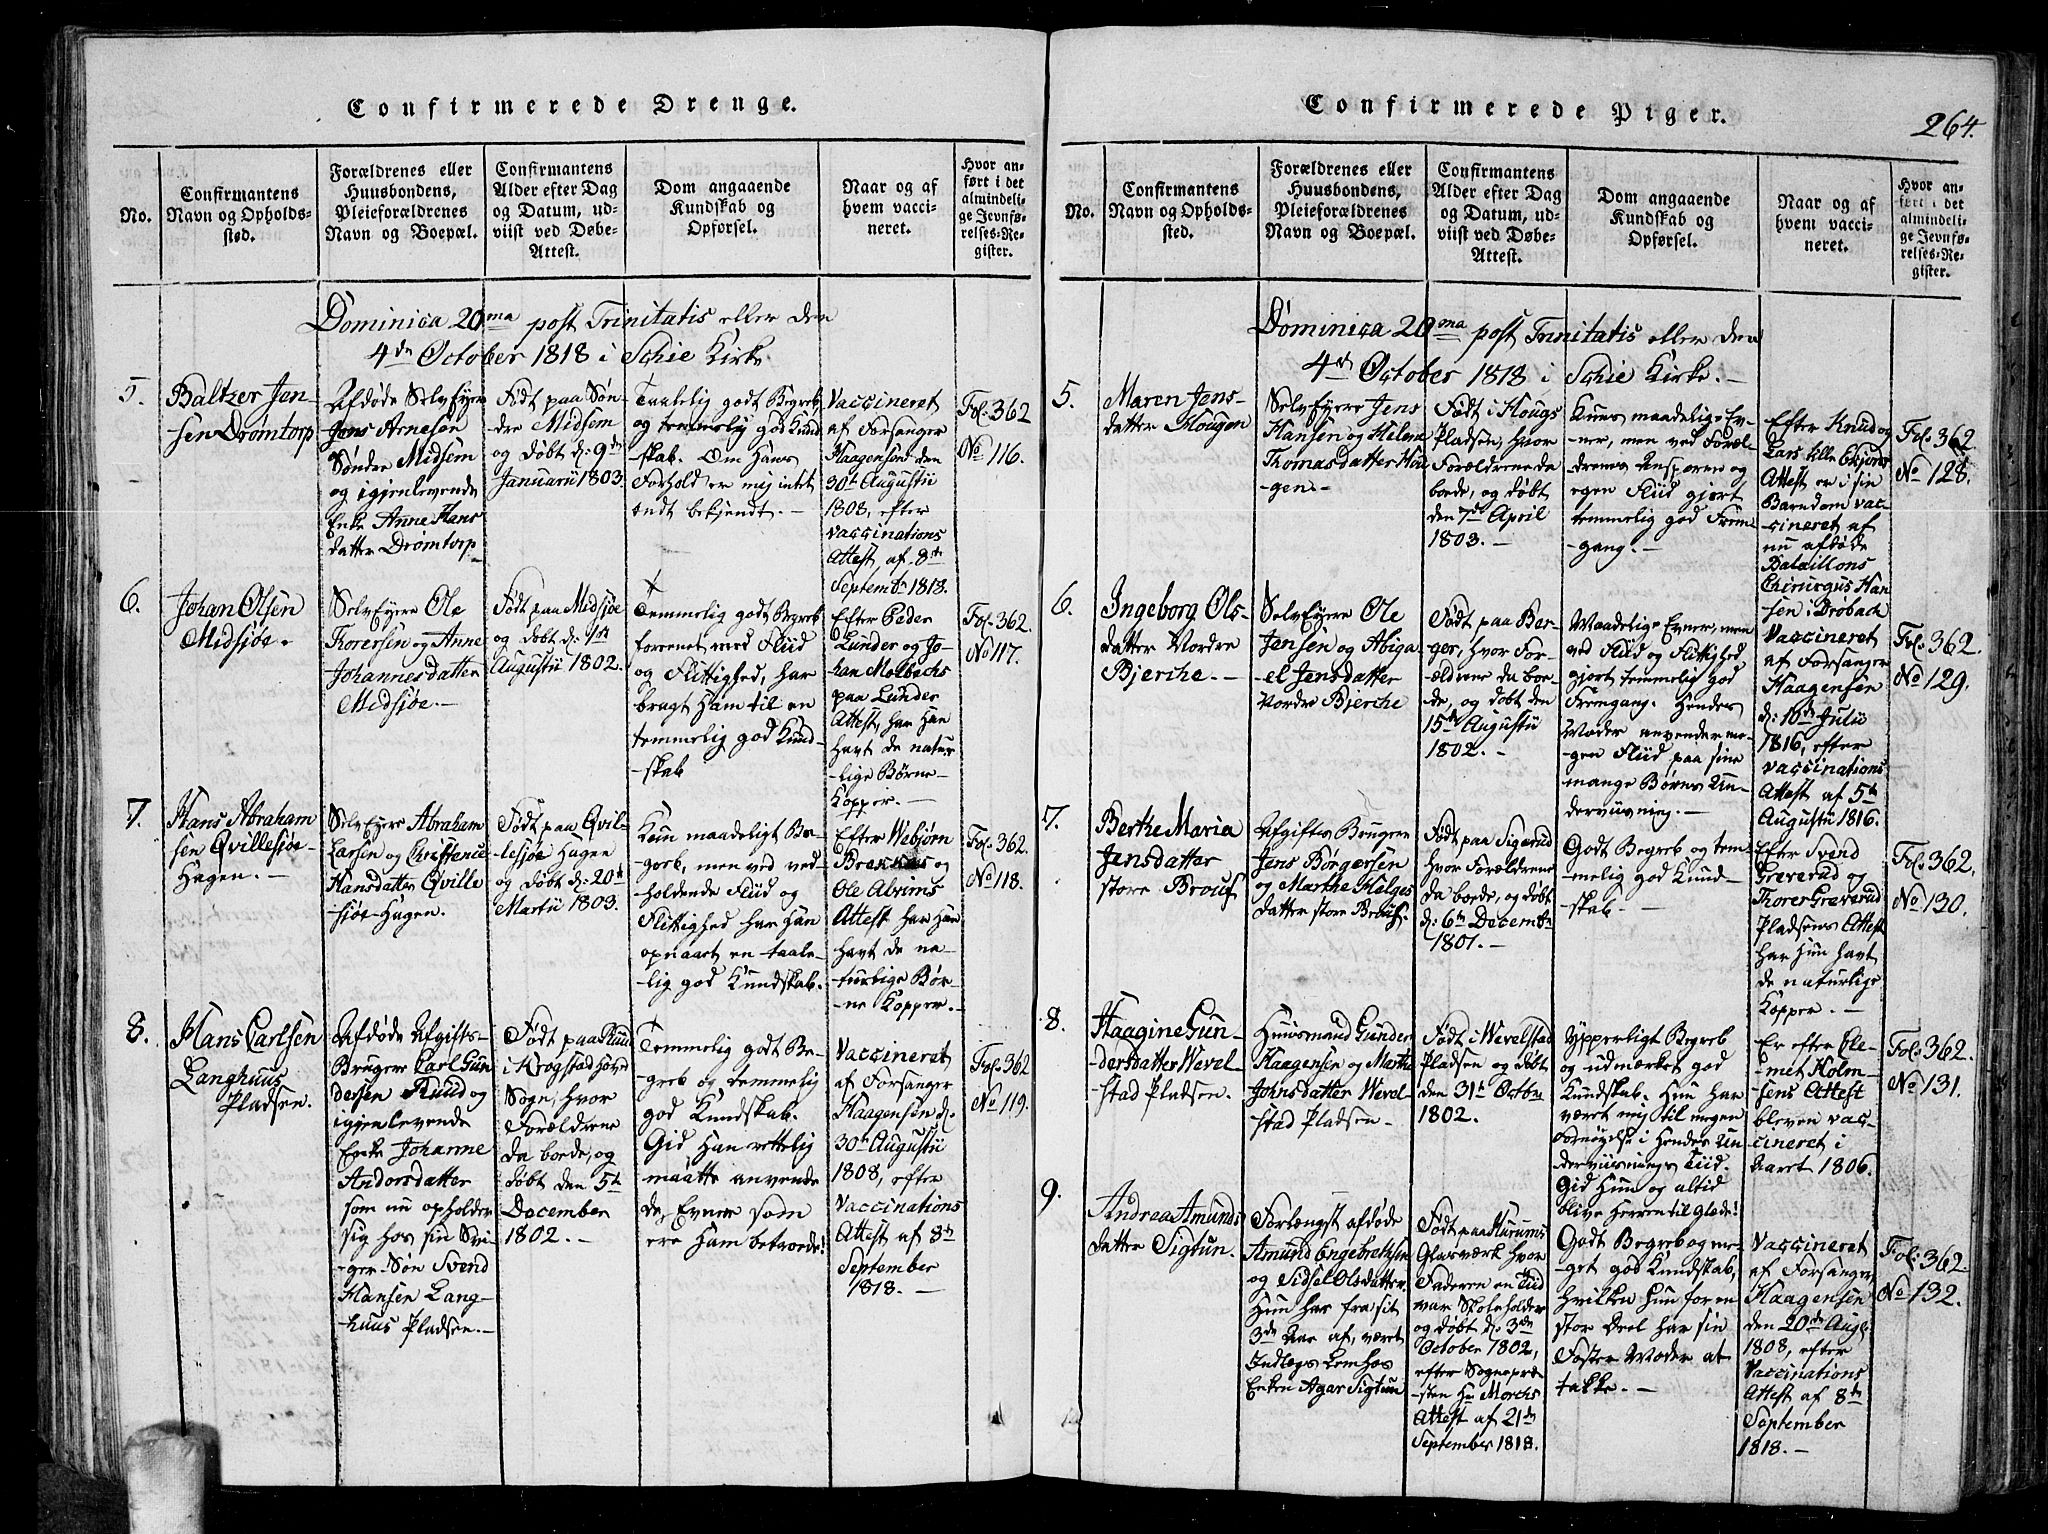 Confirmerede Drenge.
No.
Confirmantens
Navn og Opholds-
sted.
Forældrenes eller
Huusbondens,
Pleieforældrenes
Navn og Boepæl.
Confirmantens
Alder efter Dag
og Datum, ud-
viist ved Døbe-
Attest.
Dom angaaende
Kundskab og
Opførsel.
Naar og af
hvem vacci-
neret.
Hvor an-
ført i det
almindeli-
ge Jevnfø-
relses-Re-
gister.
Dominica 20ma post Trinitatis eller den
4de October 1818 i Schie Kirke.
5.
Baltzer Jen-
sen Drømtorp
Afdøde Selveyer
Jens Arnesen
Søndre Midsem
og igjenlevende
Enke Anne Hans
datter Drømtorp
Født paa Søn-
dre Midsem
og døbt d: 9de
Januarii 1803.
Taalelig godt Begreb,
og temmelig god Kund
skab. Om Hans
Forhold er mij intet
ondt bekjendt. -
Vaccineret
af Forsanger
Haagensen den
30te Augustii
1808, efter
Vaccinations
Attest af 8de
Septembr 1818.
Fol: 362
No 116.
6.
Johan Olsen
Midsjøe.
Selveyere Ole
Torersen og Anne
Johannesdatter
Midsjøe. -
Født paa Midsjøe
og døbt d: 1ste
Augustii 1802.
Temmelig godt Begreb
forenet med Fliid
og Flittighed, har
bragt Ham til en
temmelig god Kund-
-skab
Efter Peder
Lunder og Jo-
han Molbechs
paa Lunder
Attest, har Han
havt de natur
-lige Børne-
Kopper. -
Fol: 362.
No 117.
7.
Hans Abraham
sen Qvillesjøe-
Hagen. -
Selveyere Abraham
Larsen og Christence
Hansdatter Qville
-sjøe-Hagen.
Født paa Qvil-
lesjøe Hagen
og døbt d: 20de
Martii 1803.
Kun maadeligt Be-
greb, men ved ved-
holdende Fliid og
Flittighed har Han
opnaaet en taale-
lig god Kundskab.
Efter Webjørn
Brekkes og
Ole Abrims
Attest har Han
havt de na-
turlige Bør-
ne Kopper. -
Fol: 362.
No 118.
8.
Hans Carlsen
Langhuus
Pladsen.
Afdøde Afgifts-
Bruger Carl Gun
dersen Ruud og
igjenlevende
Enke Johanne
Andersdatter
som nu opholder
sig hos sin Svi-
ger-Søn Svend
Hansen Lang-
huus Pladsen. -
Født paa Ruud
i Krogstad Hoved
Sogn, hvor
Forældrene
da boede, og
døbt den 5te
December
1802. -
Temmelig godt Be-
greb og temmelig
god Kundskab.
Gid Han rettelig
maatte anvende
de Evner som
ere Ham betroede!
Vaccineret
af Forsanger
Haagensen d:
30te Augustii
1808, efter
Vaccinations
Attest af 8de
September
1818. -
Fol: 362
No 119.
Confirmerede Piger.
264.
No.
Confirmantens
Navn og Opholds-
sted.
Forældrenes eller
Huusbondens,
Pleieforældrenes
Navn og Boepæl.
Confirmantens
Alder efter Dag
og Datum, ud-
viist ved Døbe-
Attest.
Dom angaaende
Kundskab og
Opførsel.
Naar og af
hvem vacci-
neret.
Hvor an-
ført i det
almindeli-
ge Jevnfø-
relses-Re-
gister.
Dominica 20ma post Trinitatis eller den
4de October 1818 i Schie Kirke. -
5.
Maren Jens-
datter Hougen
Selveyere Jens
Hansen og Helene
Thomasdatter Hou
-gen. -
Født i Hougs
Pladsen, hvor
Forældrene da
boede, og døbt
den 7de April
1803. -
Kuns maadelige Ev-
ner, men ved Foræl-
drenes Ansporen og
egen Fliid gjort
temmelig god Frem-
-gang. -
Efter Knud og
Lars lille Ekjords
Attest er i sin
Barndom vac-
cineret af
nu afdøde
Bataillons
Chirurgus Han
sen i Drøbach
Fol: 362
No 128.
6.
Ingeborg Ols-
datter Nordre
Bjerche. -
Selveyere Ole
Jensen og Abiga
el Jensdatter
Nordre Bjerche
Født paa Ber-
ger, hvor For-
ældrene da boe-
de, og døbt den
15de Augustii
1802. -
Maadelige Evner, men
ved Fliid og Flittighed
gjort temmelig god
Fremgang. Hendes
Moder anvender me-
gen Fliid paa sine
mange Børns Un-
derviisning. -
Vaccineret
af Forsanger
Haagensen
d: 10de Julii
1816, efter
Vaccinations
Attest af 5te
Augustii 1816.
Fol: 362.
No 129.
7.
Berthe Maria
Jensdatter
store Brouf
Afgifts Brugere
Jens Børgersen
og Marthe Helges
datter store Brouf.
Født paa Sigerud
hvor Forældrene
da boede, og døbt
d: 6te Decembr
1801. -
Godt Begreb og tem-
melig god Kund-
skab. -
Efter Svend
Greverud og
Thorer Greverud
Pladsens Attest
har Hun havt
de naturlige
Kopper. -
Fol: 362.
No 130.
8.
Haagine Gun-
dersdatter Wevel-
stad Pladsen.
Huusmand Gunder
Haagensen og Marthe
Johnsdatter Wevel-
stad Pladsen -
Født i Wevelstad
Pladsen og døbt
den 31te Octobr
1802.
Ypperligt Begreb
og udmærket god
Kundskab. Hun har
været mij til megen
Fornøyelse i Hendes Un
derviisnings Tiid.
Gid Hun og altid
blive Herren til Glæde!
Er efter Cle-
met Holm-
sens Attest
bleven vac-
cineret i
Aaret 1806.
Fol: 362.
No 131.
9.
Andrea Amunds
datter Sigtun.
Forlængst afdøde
Amund Engebrethsen
og Sidsel Olsdatter.
Hun har fra sit
3de Aar af, været
Indlægs Lem hos
Enken Agar Sigtun
Født paa Hurums
Glasværk hvor
Faderen en Tiid
var Skoleholder
og døbt d: 3de
October 1802,
efter Sognepræ-
sten Hr Morchs
Attest af 21de
September 1818.
Godt Begreb og me-
get god Kundskab,
hvilken Hun for en
stor Deel har sin
Foster Moder at
takke. -
Vaccineret
af Forsanger
Haagensen
den 20de Aug:
1808, efter
Vaccinations
Attest af 8de
September
1818. -
Fol: 362.
No 132.